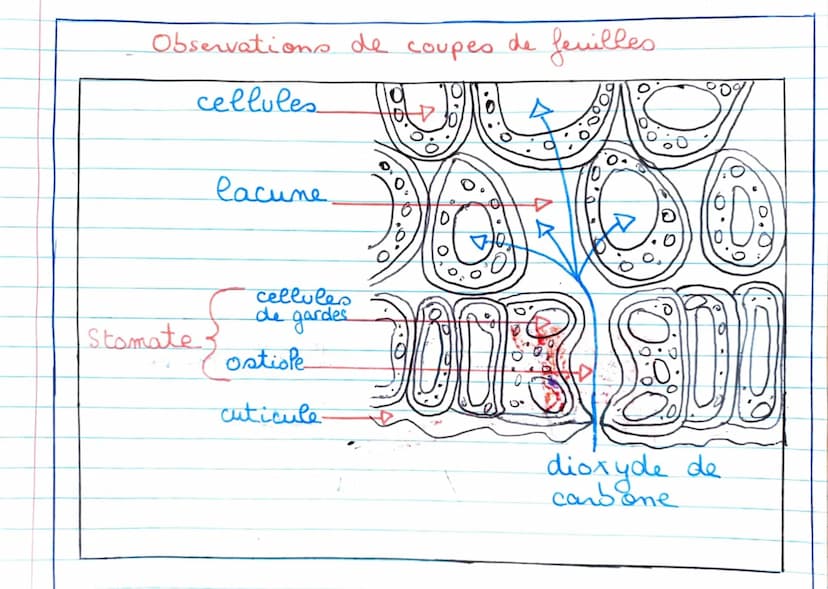 Observations de coupes de feuilles
cellules
lacune
cellules
de gardes
Stomate
ostiole
cuticule
dioxyde de
carbone